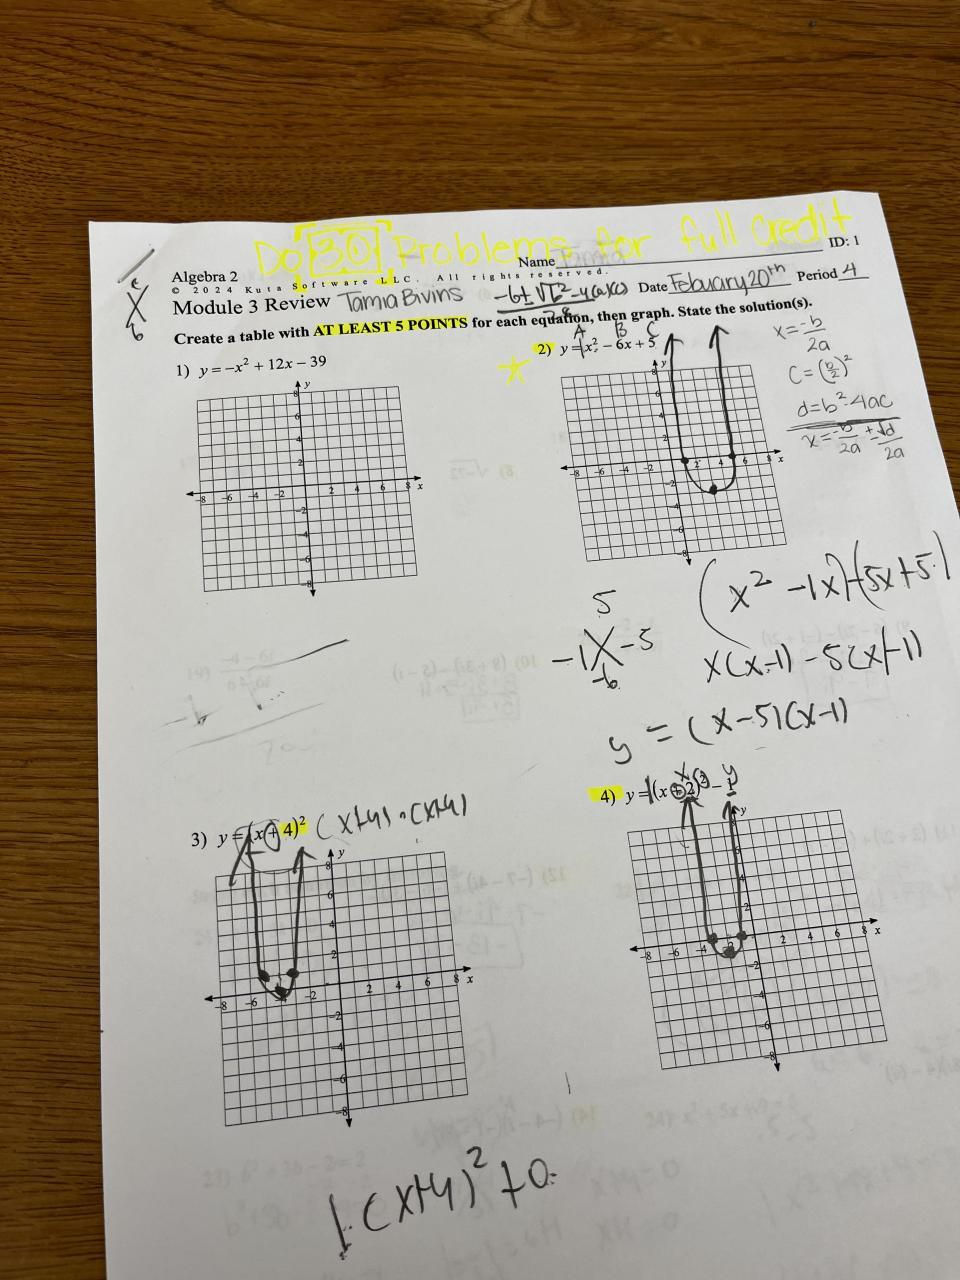 Do 30 Problems for full credit
ID: 1
Algebra 2
Name
© 2024 Kuta Software LLC. All rights reserved.
Module 3 Review Tamia Bivins
Date Febuary 20th Period 4
Create a table with AT LEAST 5 POINTS for each equation, then graph. State the solution(s).
A B C
1) y = -x² + 12x - 39
2) y = 1x² - 6x + 5
x = -b/2a
c = (b/2)²
d = b² - 4ac
x = -b/2a ± √d/2a
5
-1 X -5
-6
(x² - 1x) + (5x + 5)
x(x-1) - 5(x+-1)
y = (x-5)(x-1)
3) y = (x + 4)² (x+4) • (x+4)
x y
4) y = 1(x + 2)² - 1
1 (x+4)² + 0